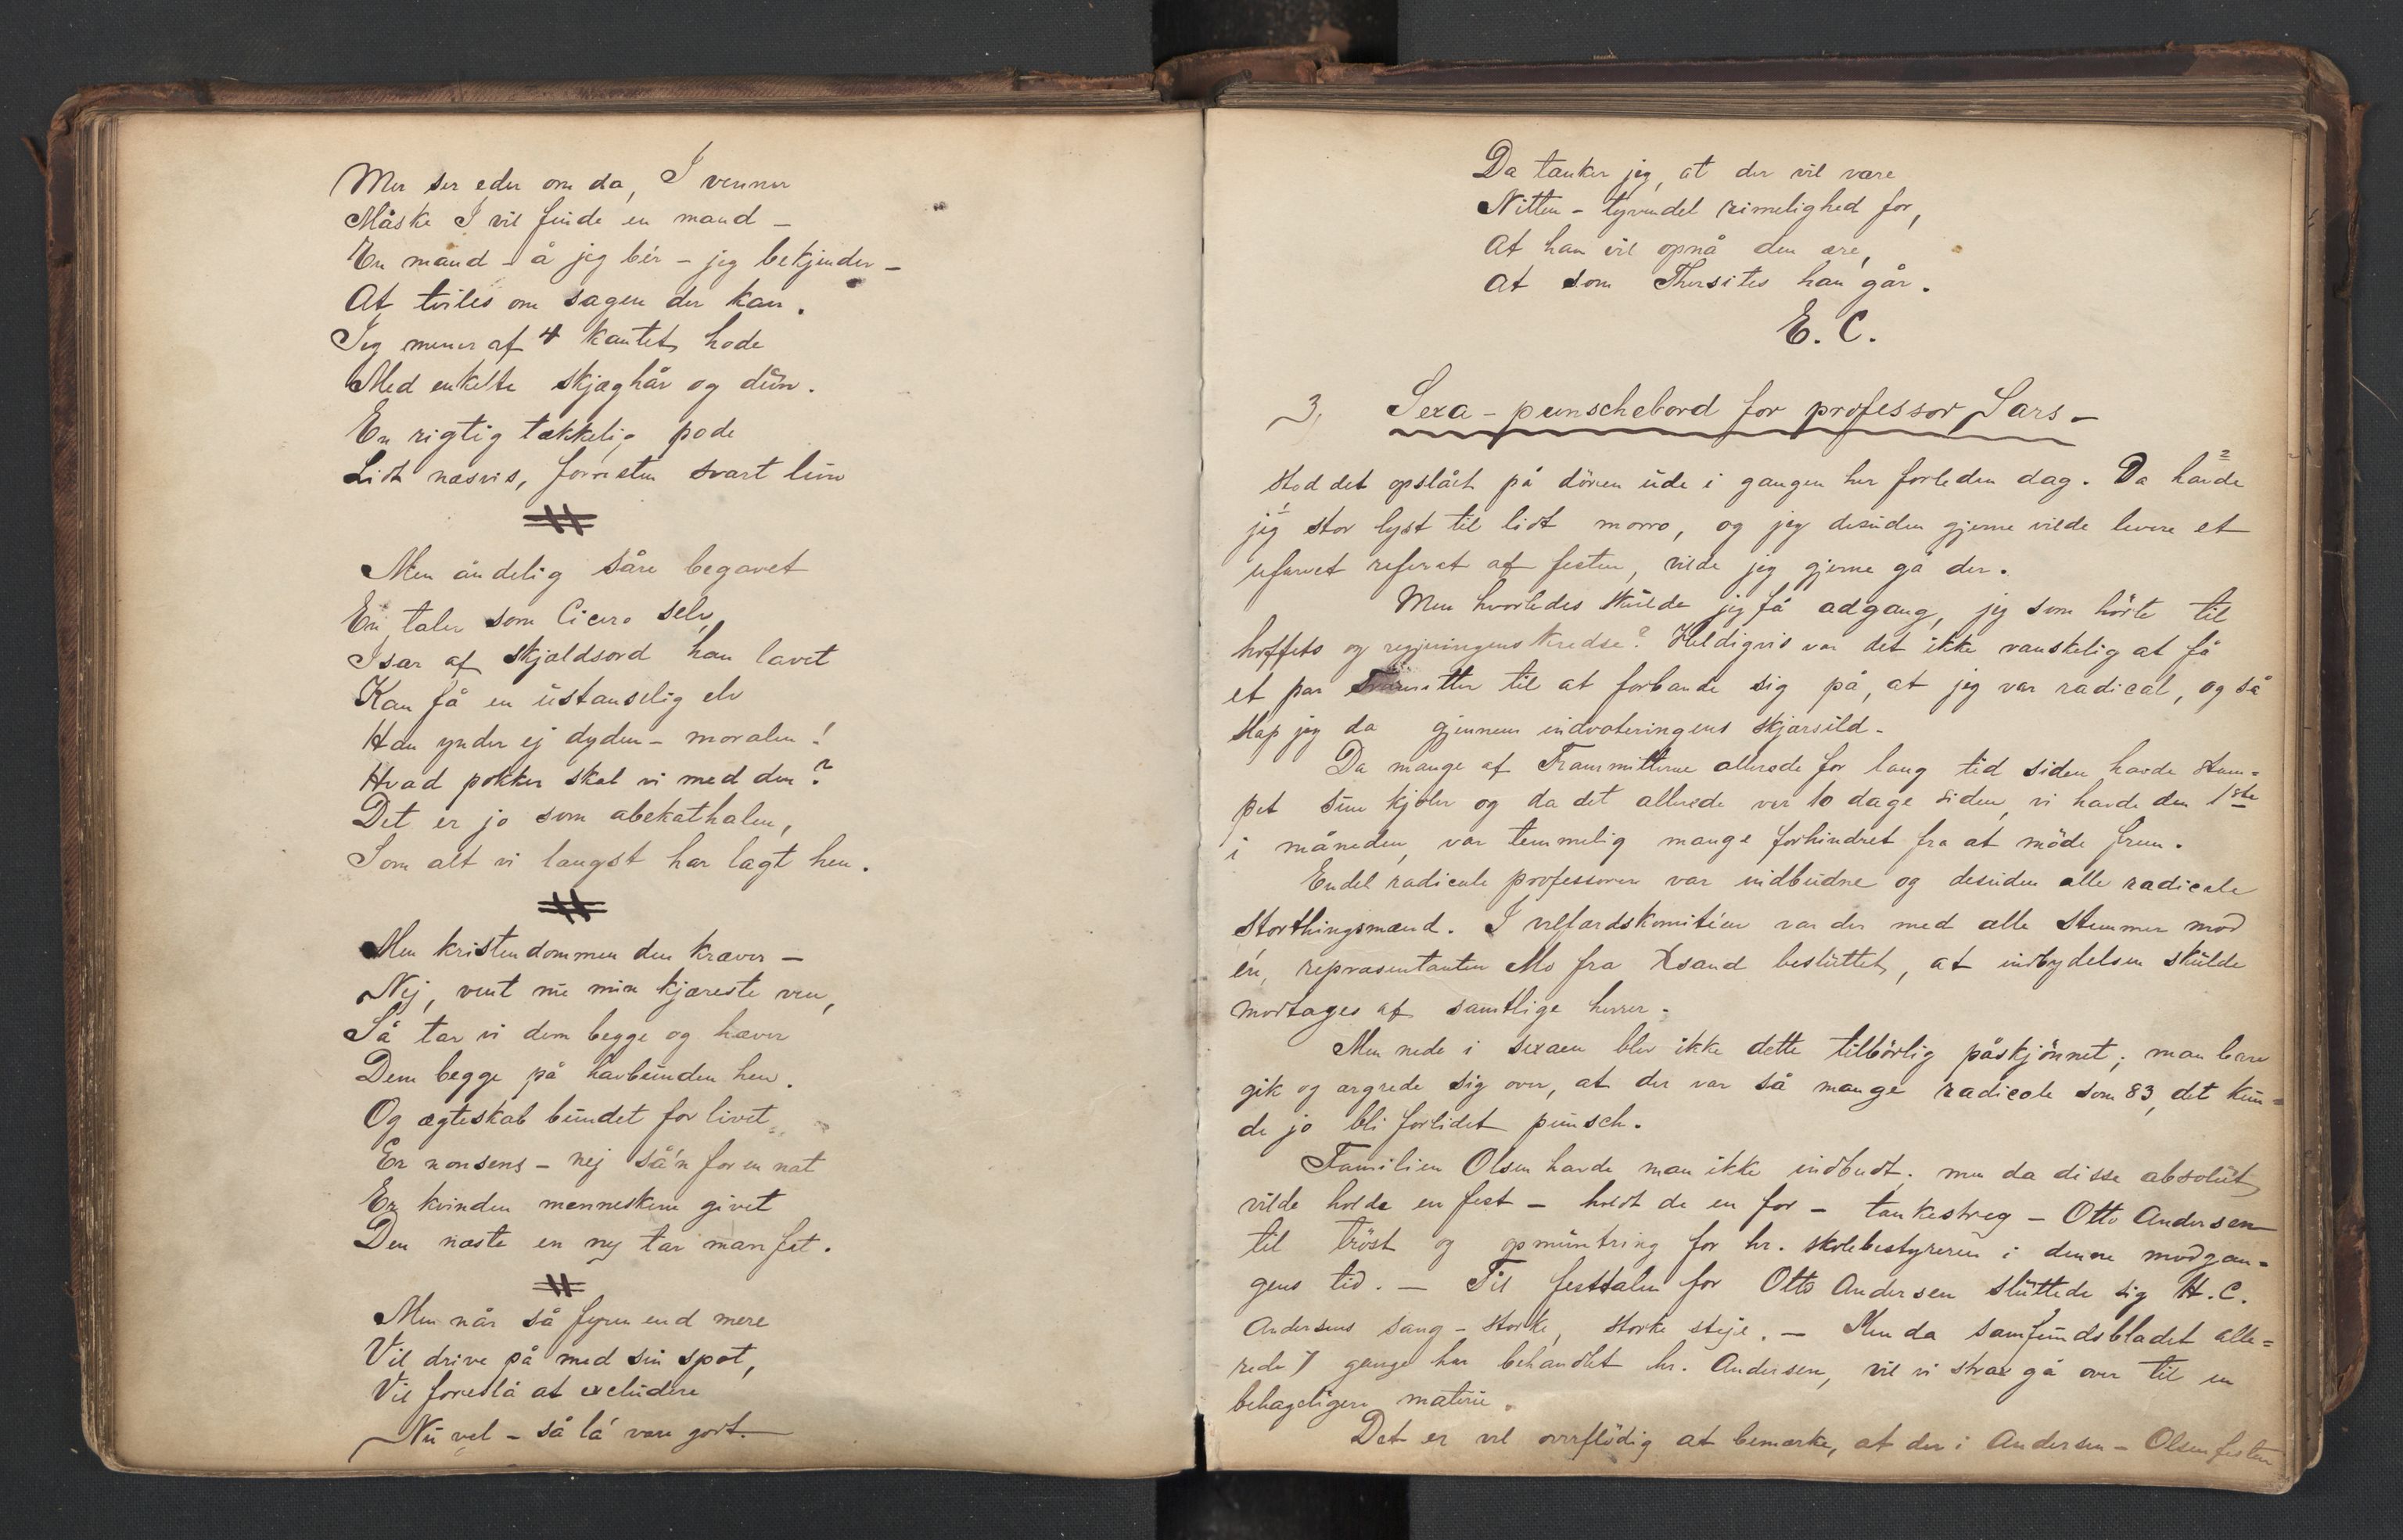 Men ser eder om da, I venner
Måske I vil finde en mand –
En mand – å jeg bér – jeg bekjender –
At tviles om sagen der kan.
Jeg mener af 4 kantet hode
Med enkelte skjæghår og dún.
En rigtig tækkelig pode
Lidt næsvis, forresten svart lún
Men åndelig såre begavet
En taler som Cicero selv,
Især af skjældsord han lavet
Kan få en ústanselig elv
Han ynder ej dyden – moralen!
Hvad pokker skal vi med den?
Det er jo som abekathalen,
Som alt vi længst har lagt hen.
Men kristendommen den kræver –
Nej, vent nú min kjæreste ven,
Så tar vi dem begge og hæver
Dem begge på havbúnden hen.
Og ægteskab búndet for livet
Er nonsens – nej så'n for en nat
Er kvinden menneskene givet
Den næste en ny tar man fat.
Men når så fyren end mere
Vil drive på med sin spot,
Vil foreslå at exclúdere
Nú vel – så lá være godt.
Da tænker jeg, at der vil være
Nitten – tyvendel rimelighed for,
At han vil opnå den ære,
At som Thersites han går.
E. C.
3, Sexa – punschebord for professor Sars –
stod det opslået på dören úde i gangen her forleden dag. Da havde
jeg stor lyst til lidt morro, og jeg desúden gjerne vilde levere et
ufarvet referat af festen, vilde jeg gjerne gå der.
Men hvorledes skúlde jeg få adgang, jeg som hörte til
hoffets og regjeringens kredse? Heldigvis var det ikke vanskelig at få
et par til at forbande sig på, at jeg var radical, og så
slap jeg da gjennem indvoteringens skjærsild.
Da mange af Franmitterne allerede for lang tid siden havde stam=
pet sine kjoler og da det allerede var 10 dage siden, vi havde den 1ste
i måneden, var temmelig mange forhindret fra at möde frem.
Endel radicale professorer var indbúdne og desúden alle radicale
storthingsmænd. I velfærdskomitéen var der med alle stemmer mod
én, repræsentanten Mo fra Xsand beslúttet, at indbydelsen skúlde
modtages af samtlige herrer.
Men nede i sexaen blev ikke dette tilbörlig påskjönnet; man bare
gik og ærgrede sig over, at der var så mange radicale som 83, det kún=
de jo bli forlidet púnsch.
Familien Olsen havde man ikke indbudt, men da disse absolút
vilde holde en fest – holdt de en for – tankestreg – Otto Andersen
til tröst og opmúntring for hr. skolebestyreren i denne modgan=
gens tid. – Til festtalen for Otto Andersen slúttede sig H. C.
Andersens sang – storke, storke steje. – Men da samfúndsbladet alle=
rede 7 gange har behandlet hr. Andersen, vil vi strax gå over til en
behageligere materie.
Det er vel overflödig at bemærke, at der i Andersen – Olsenfesten